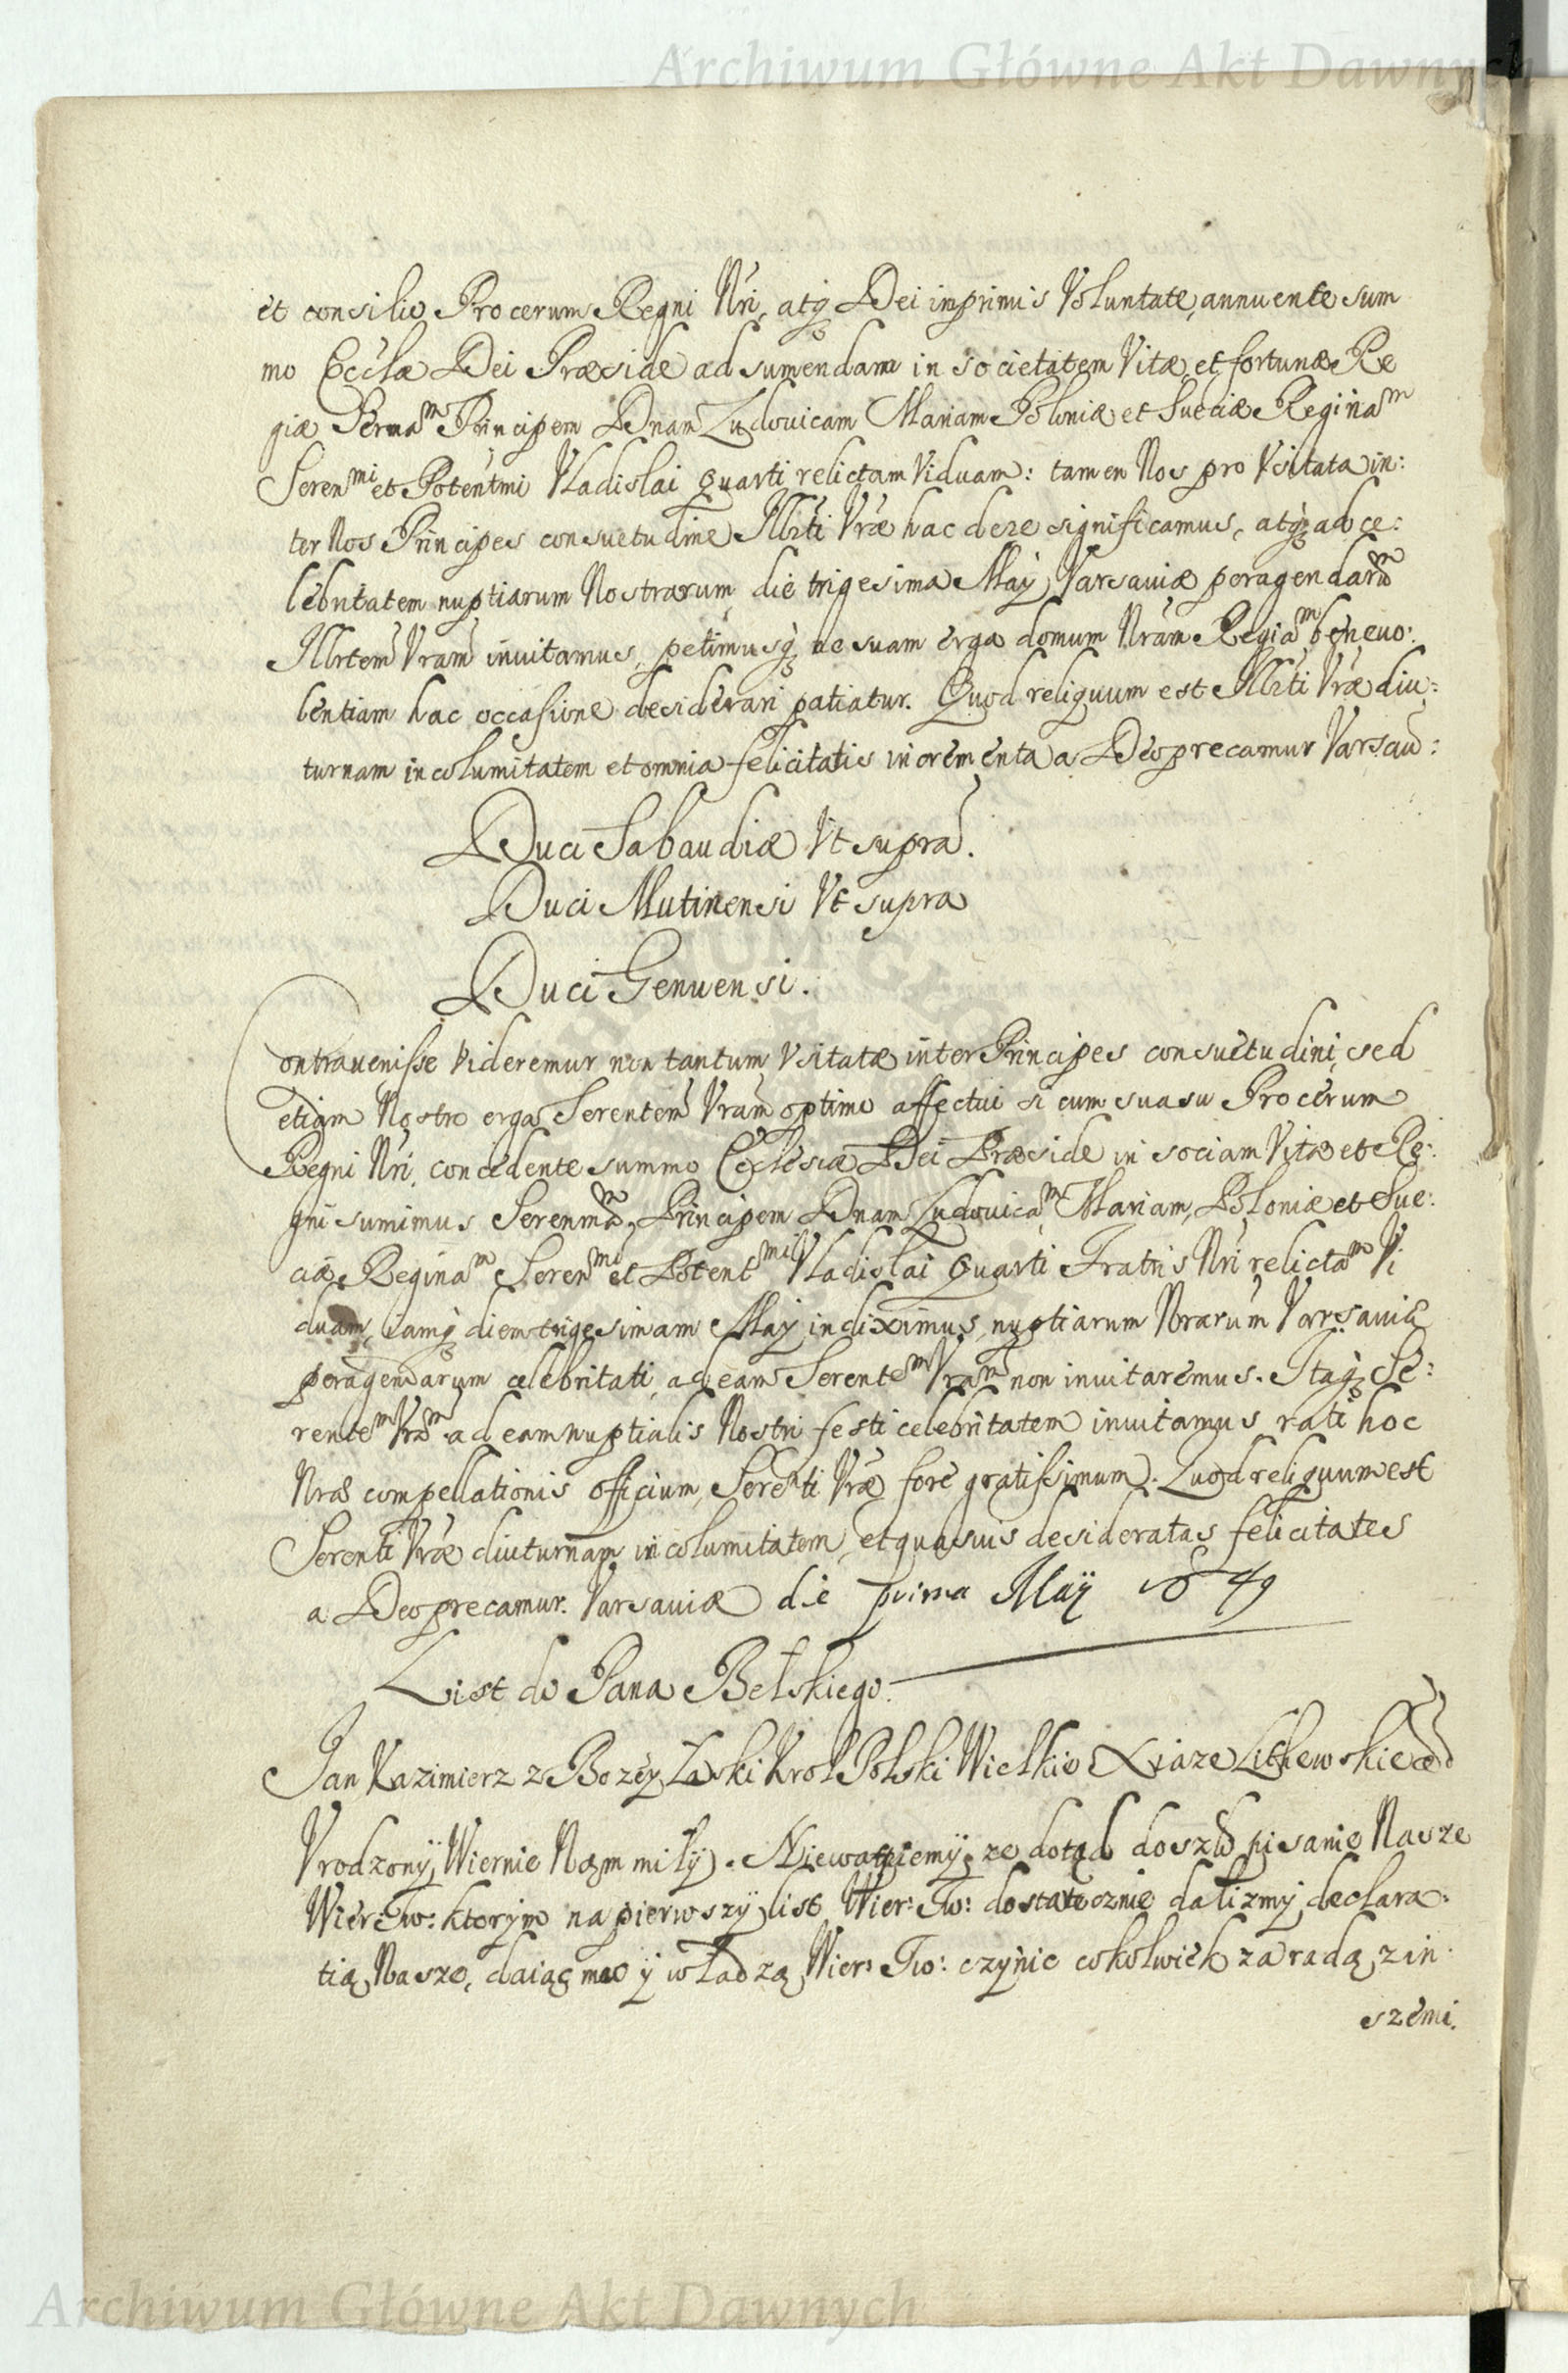 Archiwum Główne Akt Dawnych
et consilio Procerum Regni Nri, atq Dei imprimis Voluntate, annuente sum
mo Eccłae Dei Præside ad sumendam in societatem Vitæ et fortunæ Re
giæ Serma͏ᵐ Principem Dnam Ludouicam Mariam Poloniæ et Sueciæ Reginaᵐ
Serenᵐⁱ et Potentmi Vladislai Quarti relictam Viduam: tamen Nos pro Vsitata in:
ter Nos Principes consuetudine Illrti Vræ hac de re significamus, atq ad ce:
lebritatem nuptiarum Nostrarum die trigesima Maÿ Varsauiæ peragendarū
Illrtem Vram inuitamus, petimusq ne suam erga domum Nram Regiaᵐ beneuo:
lentiam hac occasione desiderari patiatur. Quod reliquum est Illrti Vræ diu:
turnam incolumitatem et omnia felicitatis incrementa a Deo precamur Varsau:
Duci Sabaudiæ Vt supra.
Duci Mutinensi Vt supra
Duci Genuensi.
Contrauenisse Videremur non tantum Vsitatæ inter Principes consuetudini, sed
etiam Nostro erga Serentem Vram optimo affectui si cum suasu Procerum
Regni Nri, concedente summo Ecclesiæ Dei Præside in sociam Vitæ et Re:
gni sumimus Serenmāᵐ Principem Dnam Ludouicaᵐ Mariam, Poloniæ et Sue:
ciæ Reginaᵐ Serenᵐⁱ et Potentᵐⁱ Vladislai Quarti Fratris Nri relictaᵐ Vi
duam, iamq diem trigesimam Maÿ indiximus, nuptiarum Nrarum Varsauiæ
peragendarum celebritati, ad eam Serenteᵐ Vram non inuitaremus. Itaq Se:
renteᵐ Vraᵐ ad eam nuptialis Nostri festi celebritatem inuitamus rati hoc
Nræ compellationis officium, Serenti Vræ fore gratissimum. Quod reliquum est
Serenti Vræ diuturnam incolumitatem, et quasuis desideratas felicitates
a Deo precamur. Varsauiæ die prima Maÿ 1649
List do Pana Bełskiego.
Jan Kazimierz z Bozey Łaski Krol Polski Wielkie Xiaze Lithewskie
Vrodzonÿ Wiernie Nam miłÿ. Niewątpiemÿ ze dotąd doszło pisanie Nasze
Wier: Tw: ktorÿm na pierwszÿ list Wier: Tw: dostatecznie dalizmÿ declara:
tią Nasze, daiąc moc ÿ władzą Wier: Tw: czÿnic cokolwiek za radą z in:
szemi.
Archiwum Główne Akt Dawnych